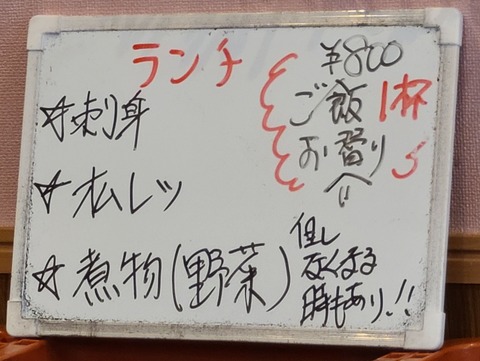 ランチ
¥800
☆刺身
ご飯1杯
お替り
☆オムレツ
☆煮物(野菜)
但し
なくなる
時もあり!!